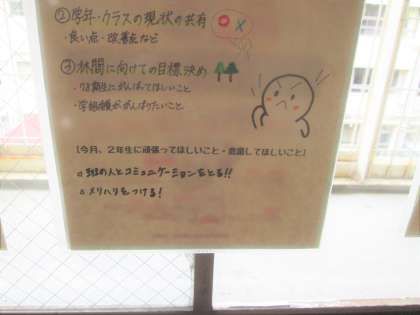 ②学年・クラスの現状の共有
・良い点・改善点など
③林間に向けての目標決め
・78期生にがんばってほしいこと
・学級委員ががんばりたいこと
[今月、2年生に頑張ってほしいこと・意識してほしいこと]
班の人とコミュニケーションをとる!!
メリハリをつける!